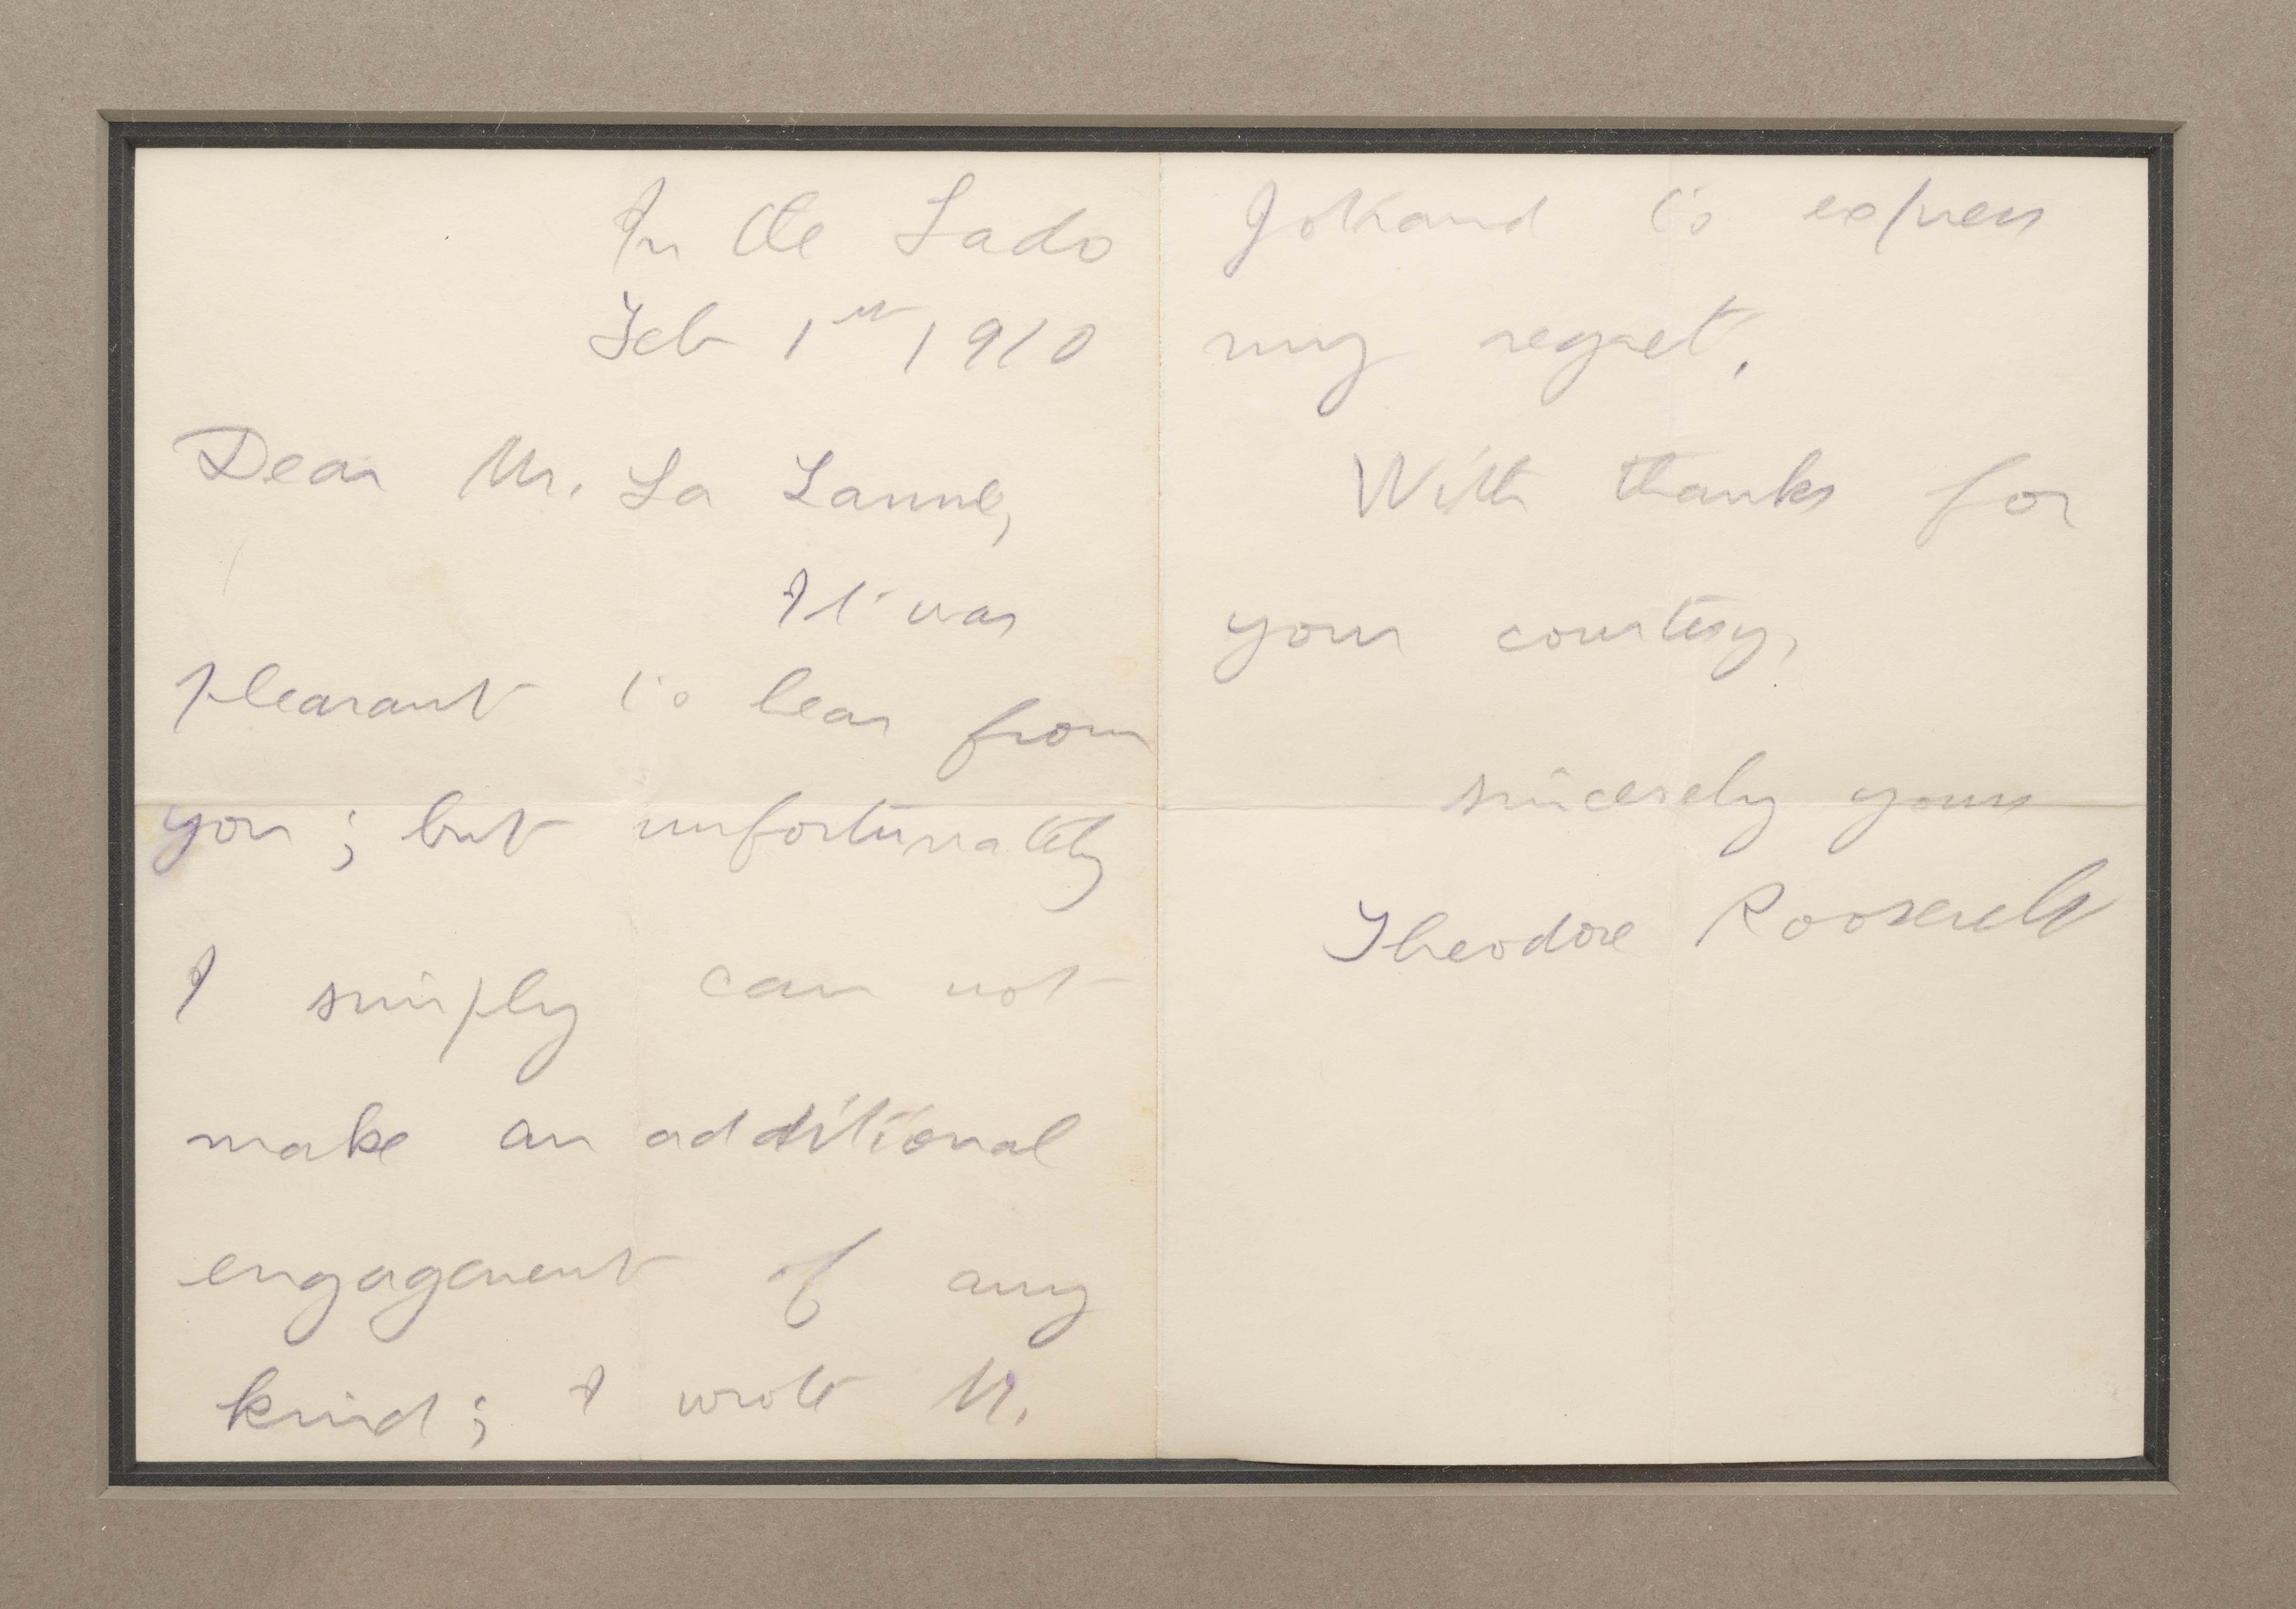 In the Lado
Feb 1st 1910
Dear Mr. La Lanne,
It was
pleasant to hear from
you; but unfortunately
I simply can not
make an additional
engagement of any
kind; I wrote M.
to express
my regret.
With thanks for
your courtesy,
sincerely yours
Theodore Roosevelt